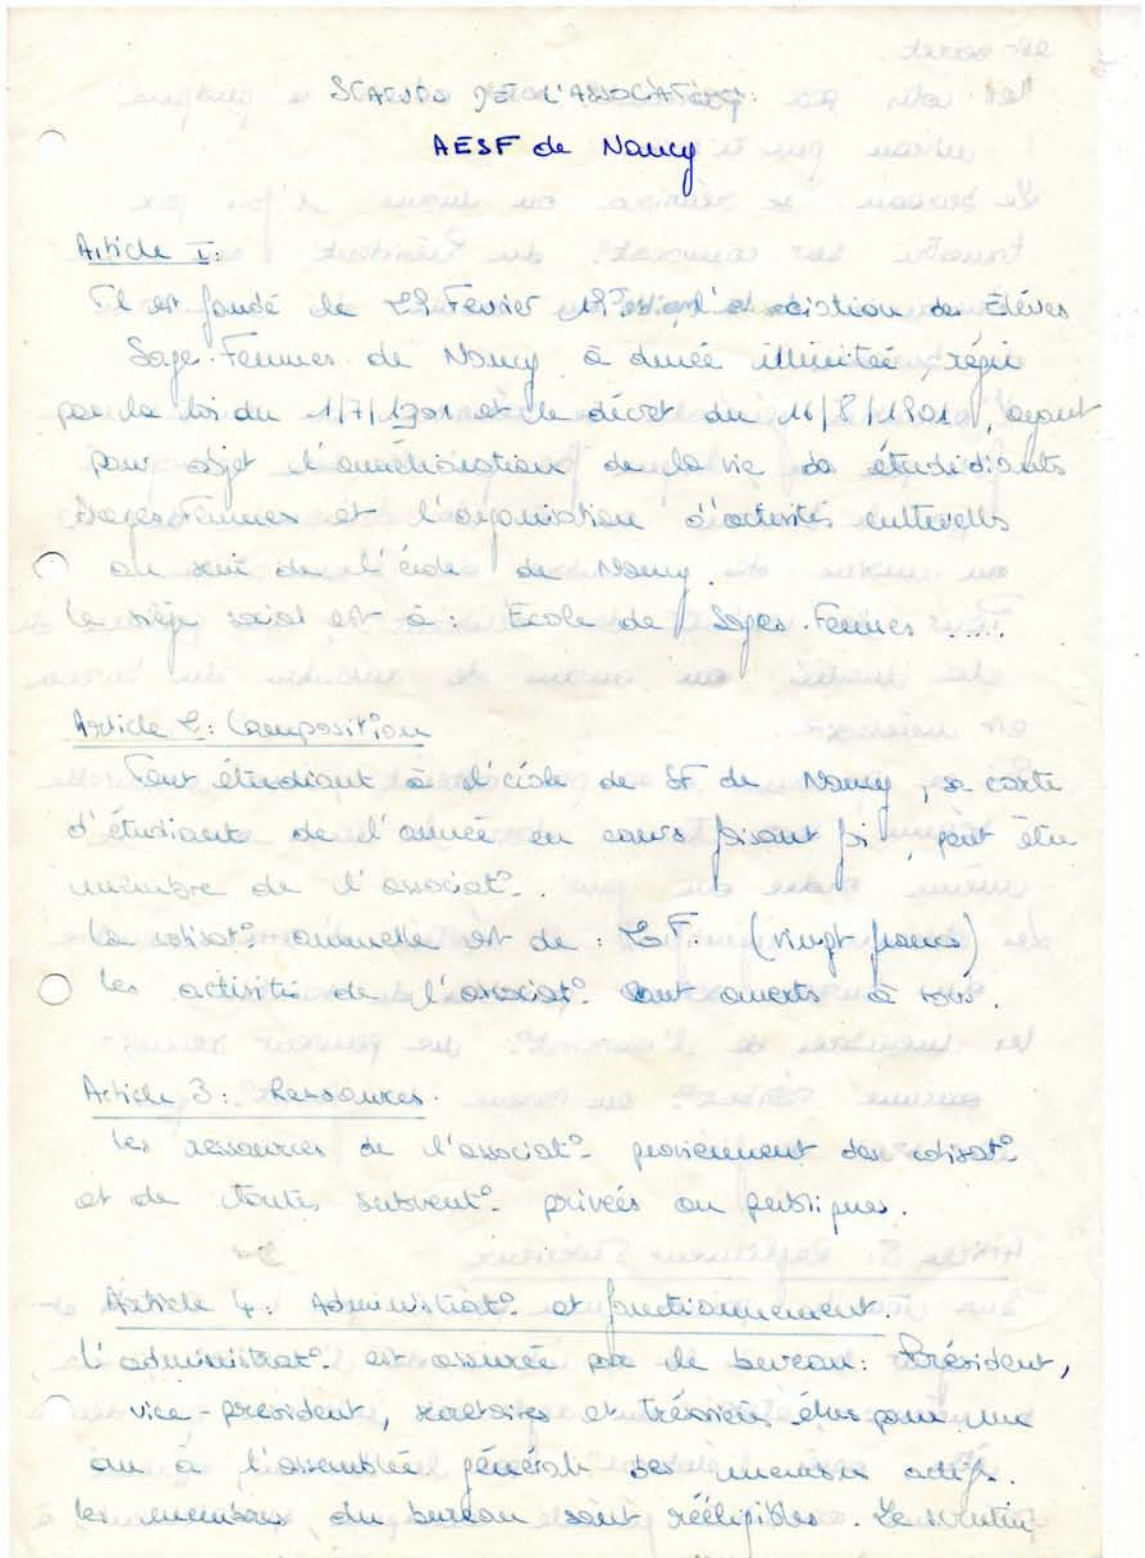 STATUTS DE L'ASSOCIATION:
AESF de Nancy
Article I:
Il est fondé le Fevrier l'association des Élèves
Sage-Femmes de Nancy à durée illimitée, régie
par la loi du 1/7/1901 et le décret du 16/8/1901, ayant
pour objet l'amélioration de la vie des étudidiants
Sages Femmes et l'organisation d'activités culturelles
au sein de l'école de Nancy.
Le siège social est à : Ecole de Sages-Femmes .....
Article 2: Composition
Tout étudiant à l'école de SF de Nancy, sa carte
d'étudiant de l'année en cours faisant foi, peut être
membre de l'associat°.
La cotisat° annuelle est de : F. (vingt francs)
Les activités de l'associat° sont ouverts à tous.
Article 3: Ressources.
Les ressources de l'associat° proviennent des cotisat°
et de toutes subvent° privées ou publiques.
Article 4: Administrat° et fonctionnement.
L'administrat° est assurée par le bureau: Président,
vice-président, secrétaires et trésoriers élus pour un
an à l'assemblée générale des membres actifs.
Les membres du bureau sont rééligibles. Le scrutin